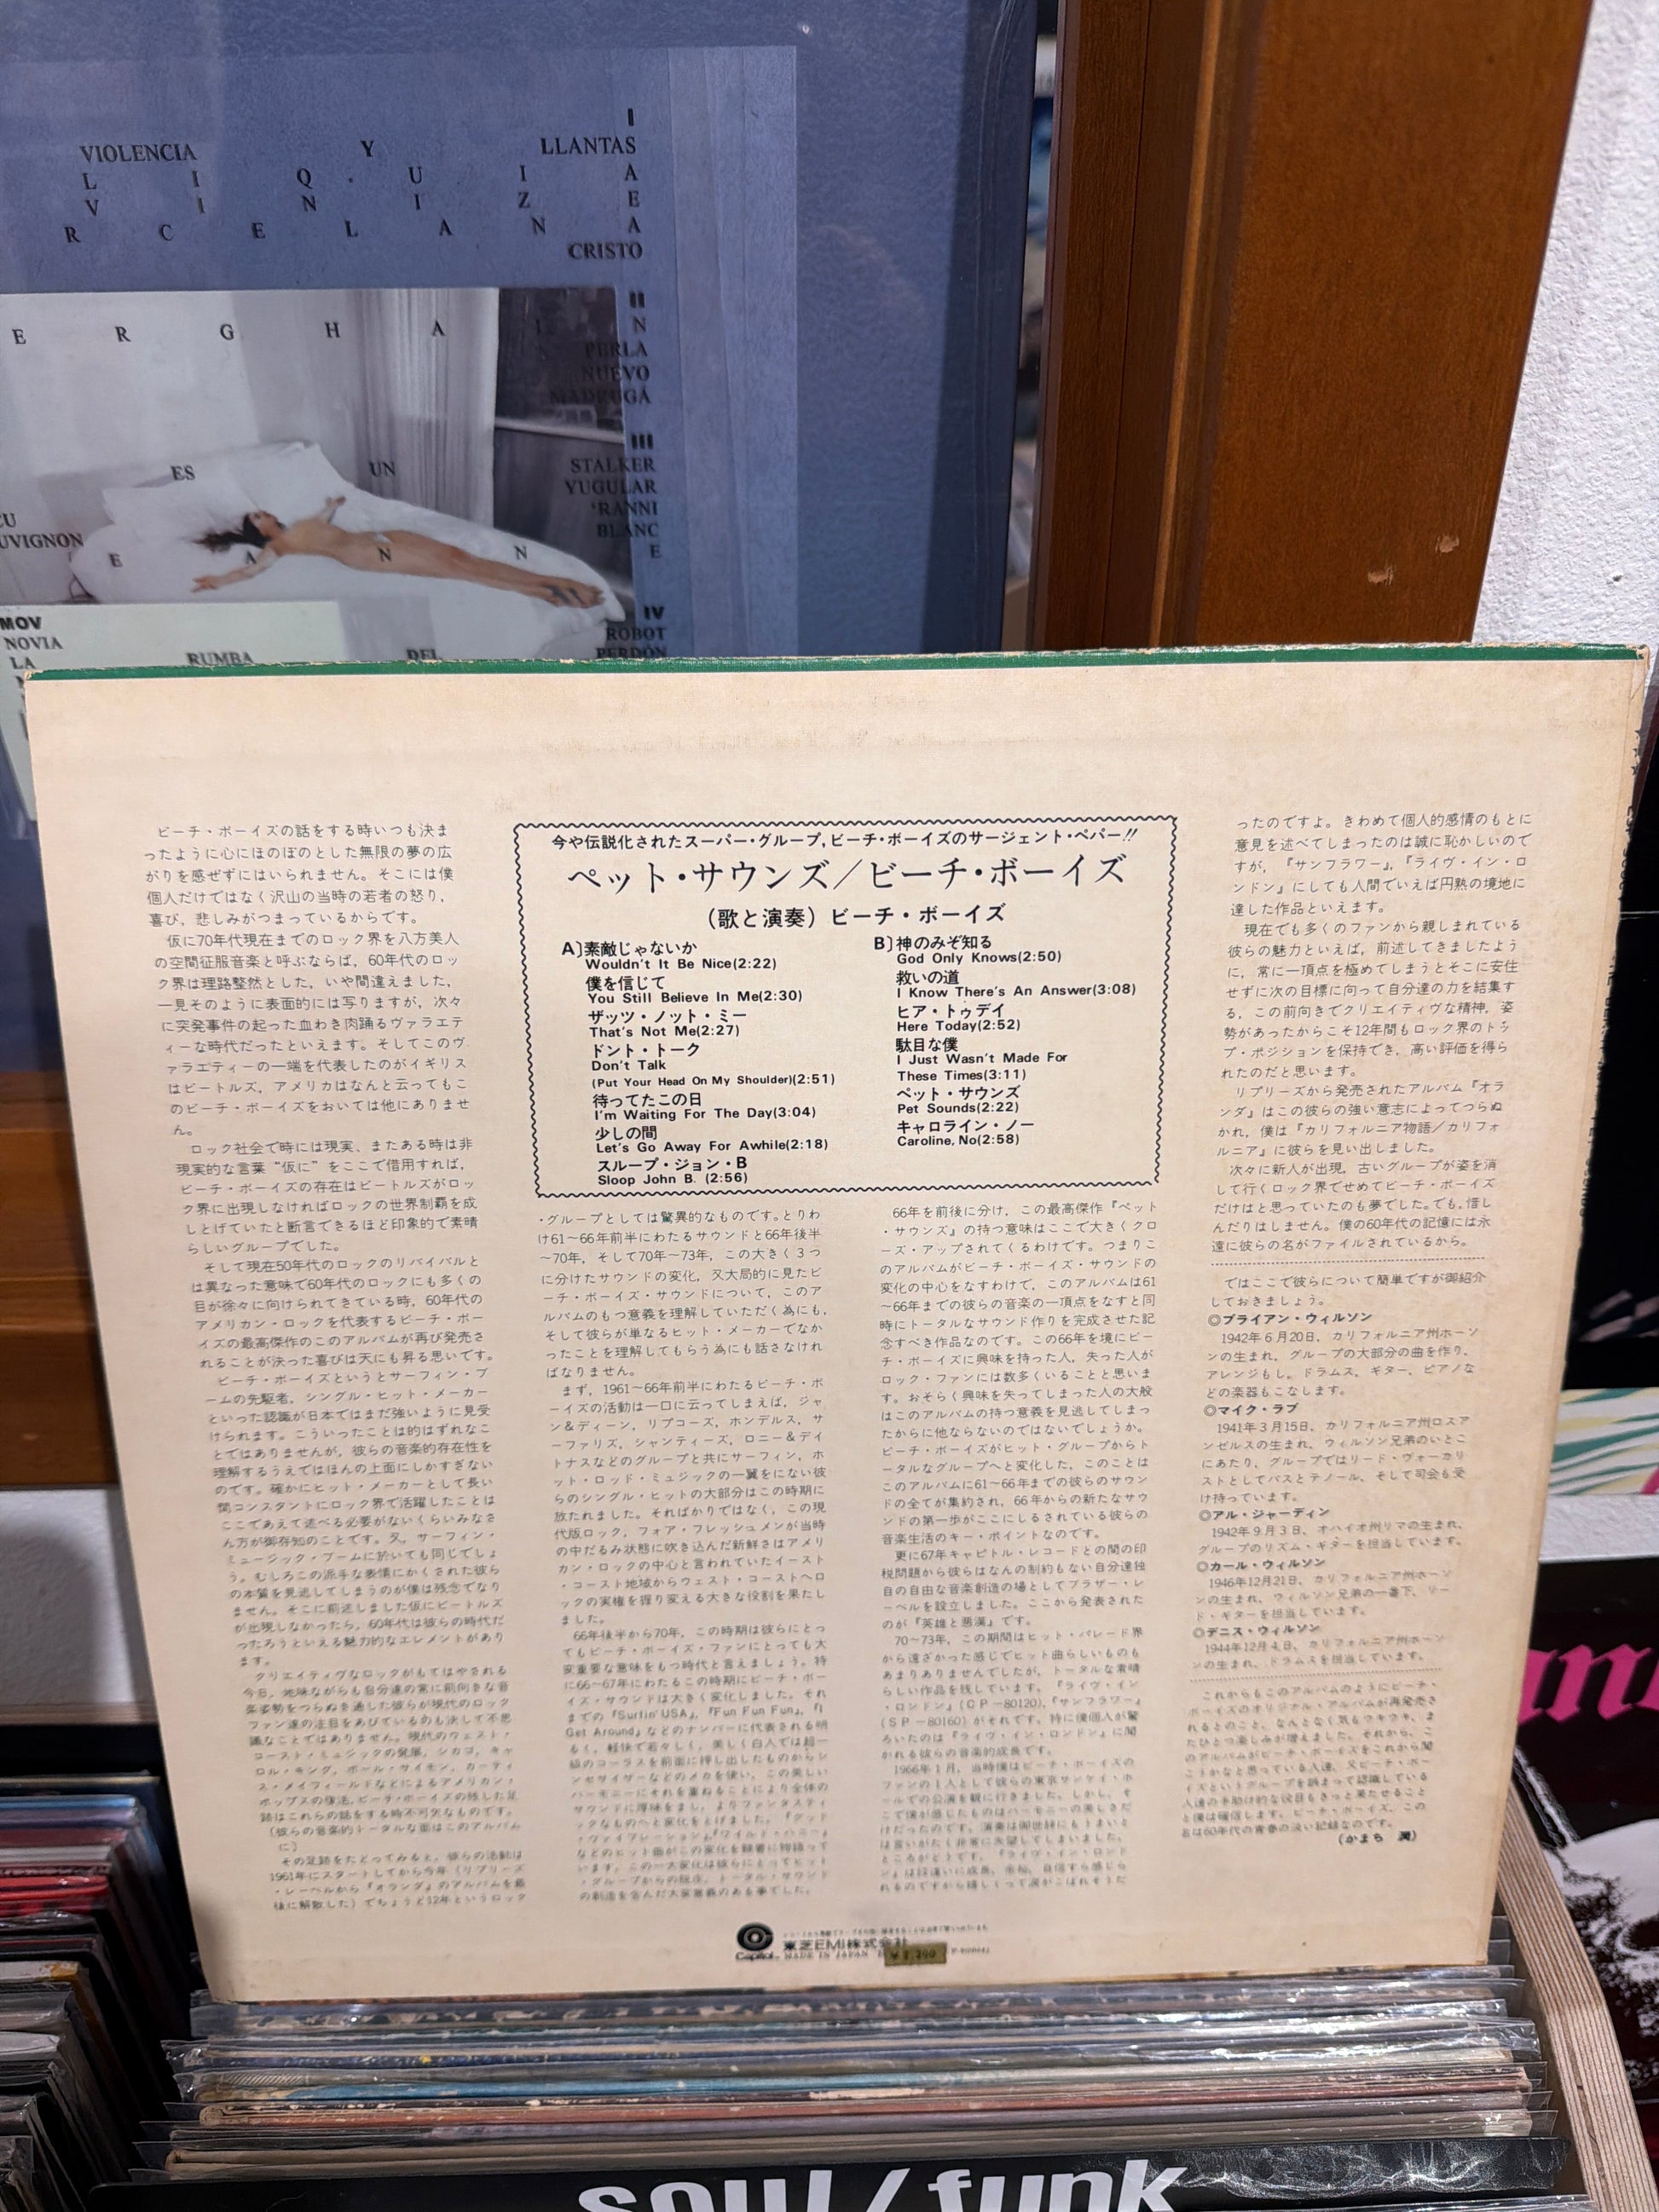 I
VIOLENCIA Y LLANTAS
L I Q U I A
V I N I Z E
R C E L A N A
CRISTO
II
E R G H A I N
PERLA
NUEVO
MADRUGÁ
III
STALKER
YUGULAR
ES UN
'RANNI
BLANC
UVIGNON
E A N N E
IV
ROBOT
PERDÓN
MOV
NOVIA
LA
RUMBA DEL
今や伝説化されたスーパー・グループ,ビーチ・ボーイズのサージェント・ペパー!!
ペット・サウンズ/ビーチ・ボーイズ
(歌と演奏)ビーチ・ボーイズ
A〕素敵じゃないか
Wouldn't It Be Nice(2:22)
僕を信じて
You Still Believe In Me(2:30)
ザッツ・ノット・ミー
That's Not Me(2:27)
ドント・トーク
Don't Talk
(Put Your Head On My Shoulder)(2:51)
待ってたこの日
I'm Waiting For The Day(3:04)
少しの間
Let's Go Away For Awhile(2:18)
スループ・ジョン・B
Sloop John B. (2:56)
B〕神のみぞ知る
God Only Knows(2:50)
救いの道
I Know There's An Answer(3:08)
ヒア・トゥデイ
Here Today(2:52)
駄目な僕
I Just Wasn't Made For
These Times(3:11)
ペット・サウンズ
Pet Sounds(2:22)
キャロライン・ノー
Caroline, No(2:58)
ビーチ・ボーイズの話をする時いつも決ま
ったように心にほのぼのとした無限の夢の広
がりを感ぜずにはいられません。そこには僕
個人だけではなく沢山の当時の若者の怒り,
喜び, 悲しみがつまっているからです。
仮に70年代現在までのロック界を八方美人
の空間征服音楽と呼ぶならば, 60年代のロッ
ク界は理路整然とした, いや間違えました,
一見そのように表面的には写りますが, 次々
に突発事件の起った血わき肉踊るヴァラエテ
ィーな時代だったといえます。そしてこのヴ
ァラエティーの一端を代表したのがイギリス
はビートルズ, アメリカはなんと云ってもこ
のビーチ・ボーイズをおいては他にありませ
ん。
ロック社会で時には現実, またある時は非
現実的な言葉“仮に”をここで借用すれば,
ビーチ・ボーイズの存在はビートルズがロッ
ク界に出現しなければロックの世界制覇を成
しとげていたと断言できるほど印象的で素晴
らしいグループでした。
そして現在50年代のロックのリバイバルと
は異なった意味で60年代のロックにも多くの
目が徐々に向けられてきている時, 60年代の
アメリカン・ロックを代表するビーチ・ボー
イズの最高傑作のこのアルバムが再び発売さ
れることが決った喜びは天にも昇る思いです。
ビーチ・ボーイズというとサーフィン・ブ
ームの先駆者, シングル・ヒット・メーカー
といった認識が日本ではまだ強いように見受
けられます。こういったことは的はずれなこ
とではありませんが, 彼らの音楽的存在性を
理解するうえではほんの上面にしかすぎない
のです。確かにヒット・メーカーとして長い
間コンスタントにロック界で活躍したことは
ここであえて述べる必要がないくらいみなさ
ん方が御存知のことです。又, サーフィン・
ミュージック・ブームに於いても同じでしょ
う。むしろこの派手な表情にかくされた彼ら
の本質を見逃してしまうのが僕は残念でなり
ません。そこに前述しました仮にビートルズ
が出現しなかったら, 60年代は彼らの時代だ
ったろうといえる魅力的なエレメントがあり
ます。
クリエイティヴなロックがもてはやされる
今日, 地味ながらも自分達の常に前向きな音
楽姿勢をつらぬき通した彼らが現代のロック
ファン達の注目をあびているのも決して不思
議なことではありません。現代のウェスト・
コースト・ミュージックの発展, シカゴ, キャ
ロル・キング, ポール・サイモン, カーティ
ス・メイフィールドなどによるアメリカン・
ポップスの復活, ビーチ・ボーイズの残した足
跡はこれらの話をする時不可欠なものです。
(彼らの音楽的トータルな面はこのアルバム
に)
その足跡をたどってみると, 彼らの活動は
1961年にスタートしてから今年(リプリーズ
・レーベルから『オランダ』のアルバムを最
後に解散した)でちょうど12年というロック
・グループとしては驚異的なものです。とりわ
け61〜66年前半にわたるサウンドと66年後半
〜70年, そして70年〜73年, この大きく3つ
に分けたサウンドの変化, 又大局的に見たビ
ーチ・ボーイズ・サウンドについて, このア
ルバムのもつ意義を理解していただく為にも,
そして彼らが単なるヒット・メーカーでなか
ったことを理解してもらう為にも話さなけれ
ばなりません。
まず, 1961〜66年前半にわたるビーチ・ボ
ーイズの活動は一口に云ってしまえば, ジャ
ン&ディーン, リプコーズ, ホンデルス, サ
ーファリズ, シャンティーズ, ロニー&デイ
トナスなどのグループと共にサーフィン, ホ
ット・ロッド・ミュジックの一翼をにない彼
らのシングル・ヒットの大部分はこの時期に
放たれました。そればかりではなく, この現
代版ロック, フォア・フレッシュメンが当時
の中だるみ状態に吹き込んだ新鮮さはアメリ
カン・ロックの中心と言われていたイースト
・コースト地域からウェスト・コーストへロ
ックの実権を握り変える大きな役割を果たし
ました。
66年後半から70年, この時期は彼らにとっ
てもビーチ・ボーイズ・ファンにとっても大
変重要な意味をもつ時代と言えましょう。特
に66〜67年にわたるこの時期にビーチ・ボー
イズ・サウンドは大きく変化しました。それ
までの『Surfin' USA』,『Fun Fun Fun』,『I
Get Around』などのナンバーに代表される明
るく, 軽快で若々しく, 美しく白人では超一
級のコーラスを前面に押し出したものからシ
ンセサイザーなどのメカを使い, この美しい
ハーモニーにそれを重ねることにより全体の
サウンドに厚味をまし, よりファンタスティ
ックなものへと変化をとげました。『グッド
・ヴァイブレーション』『ワイルド・ハニー』
などのヒット曲がこの変化を顕著に物語って
います。この一大変化は彼らにとってヒット
・グループからの脱皮, トータル・サウンド
の創造を含んだ大変意義のある事でした。
66年を前後に分け, この最高傑作『ペット
・サウンズ』の持つ意味はここで大きくクロ
ーズ・アップされてくるわけです。つまりこ
のアルバムがビーチ・ボーイズ・サウンドの
変化の中心をなすわけで, このアルバムは61
〜66年までの彼らの音楽の一頂点をなすと同
時にトータルなサウンド作りを完成させた記
念すべき作品なのです。この66年を境にビー
チ・ボーイズに興味を持った人, 失った人が
ロック・ファンには数多くいることと思いま
す。おそらく興味を失ってしまった人の大般
はこのアルバムの持つ意義を見逃してしまっ
たからに他ならないのではないでしょうか。
ビーチ・ボーイズがヒット・グループからト
ータルなグループへと変化した, このことは
このアルバムに61〜66年までの彼らのサウン
ドの全てが集約され, 66年からの新たなサウ
ンドの第一歩がここにしるされている彼らの
音楽生活のキー・ポイントなのです。
更に67年キャピトル・レコードとの間の印
税問題から彼らはなんの制約もない自分達独
自の自由な音楽創造の場としてブラザー・レ
ーベルを設立しました。ここから発表された
のが『英雄と悪漢』です。
70〜73年, この期間はヒット・パレード界
から遠ざかった感じでヒット曲らしいものも
あまりありませんでしたが, トータルな素晴
らしい作品を残しています。『ライヴ・イン
・ロンドン』(CP−80120),『サンフラワー』
(SP−80160)がそれです。特に僕個人が驚
ろいたのは『ライヴ・イン・ロンドン』に聞
かれる彼らの音楽的成長です。
1966年1月, 当時僕はビーチ・ボーイズの
ファンの1人として彼らの東京サンケイ・ホ
ールでの公演を観に行きました。しかし, そ
こで僕が感じたものはハーモニーの美しさだ
けだったのです。演奏は御世辞にもうまいと
は言いがたく非常に失望してしまいました。
ところがどうです, 『ライヴ・イン・ロンド
ったのですよ。きわめて個人的感情のもとに
意見を述べてしまったのは誠に恥かしいので
すが, 『サンフラワー』,『ライヴ・イン・ロ
ンドン』にしても人間でいえば円熟の境地に
達した作品といえます。
現在でも多くのファンから親しまれている
彼らの魅力といえば, 前述してきましたよう
に, 常に一頂点を極めてしまうとそこに安住
せずに次の目標に向って自分達の力を結集す
る, この前向きでクリエイティヴな精神, 姿
勢があったからこそ12年間もロック界のトッ
プ・ポジションを保持でき, 高い評価を得ら
れたのだと思います。
リプリーズから発売されたアルバム『オラ
ンダ』はこの彼らの強い意志によってつらぬ
かれ, 僕は『カリフォルニア物語/カリフォ
ルニア』に彼らを見い出しました。
次々に新人が出現, 古いグループが姿を消
して行くロック界でせめてビーチ・ボーイズ
だけはと思っていたのも夢でした。でも, 惜し
んだりはしません。僕の60年代の記憶には永
遠に彼らの名がファイルされているから。
ではここで彼らについて簡単ですが御紹介
しておきましょう。
◎ブライアン・ウィルソン
1942年6月20日, カリフォルニア州ホーソ
ンの生まれ, グループの大部分の曲を作り,
アレンジもし, ドラムス, ギター, ピアノな
どの楽器もこなします。
◎マイク・ラブ
1941年3月15日, カリフォルニア州ロスア
ンゼルスの生まれ, ウィルソン兄弟のいとこ
にあたり, グループではリード・ヴォーカリ
ストとしてバスとテノール, そして司会も受
け持っています。
◎アル・ジャーディン
1942年9月3日, オハイオ州リマの生まれ,
グループのリズム・ギターを担当しています。
◎カール・ウィルソン
1946年12月21日, カリフォルニア州ホーソ
ンの生まれ, ウィルソン兄弟の一番下, リー
ド・ギターを担当しています。
◎デニス・ウィルソン
1944年12月4日, カリフォルニア州ホーソ
ンの生まれ, ドラムスを担当しています。
これからもこのアルバムのようにビーチ・
ボーイズのオリジナル・アルバムが再発売さ
れるとのこと, なんとなく気もウキウキ, ま
たひとつ楽しみが増えました。それから, こ
のアルバムがビーチ・ボーイズをこれから聞
こうかなと思っている人達, 又ビーチ・ボー
イズというグループを誤まって認識している
人達の手助け的な役目もきっと果たせること
と僕は確信します。ビーチ・ボーイズ, この
名は60年代の青春の淡い記録なのです。
(かまち 潤)
Capitol
東芝EMI株式会社
MADE IN JAPAN
¥2,200
soul/funk